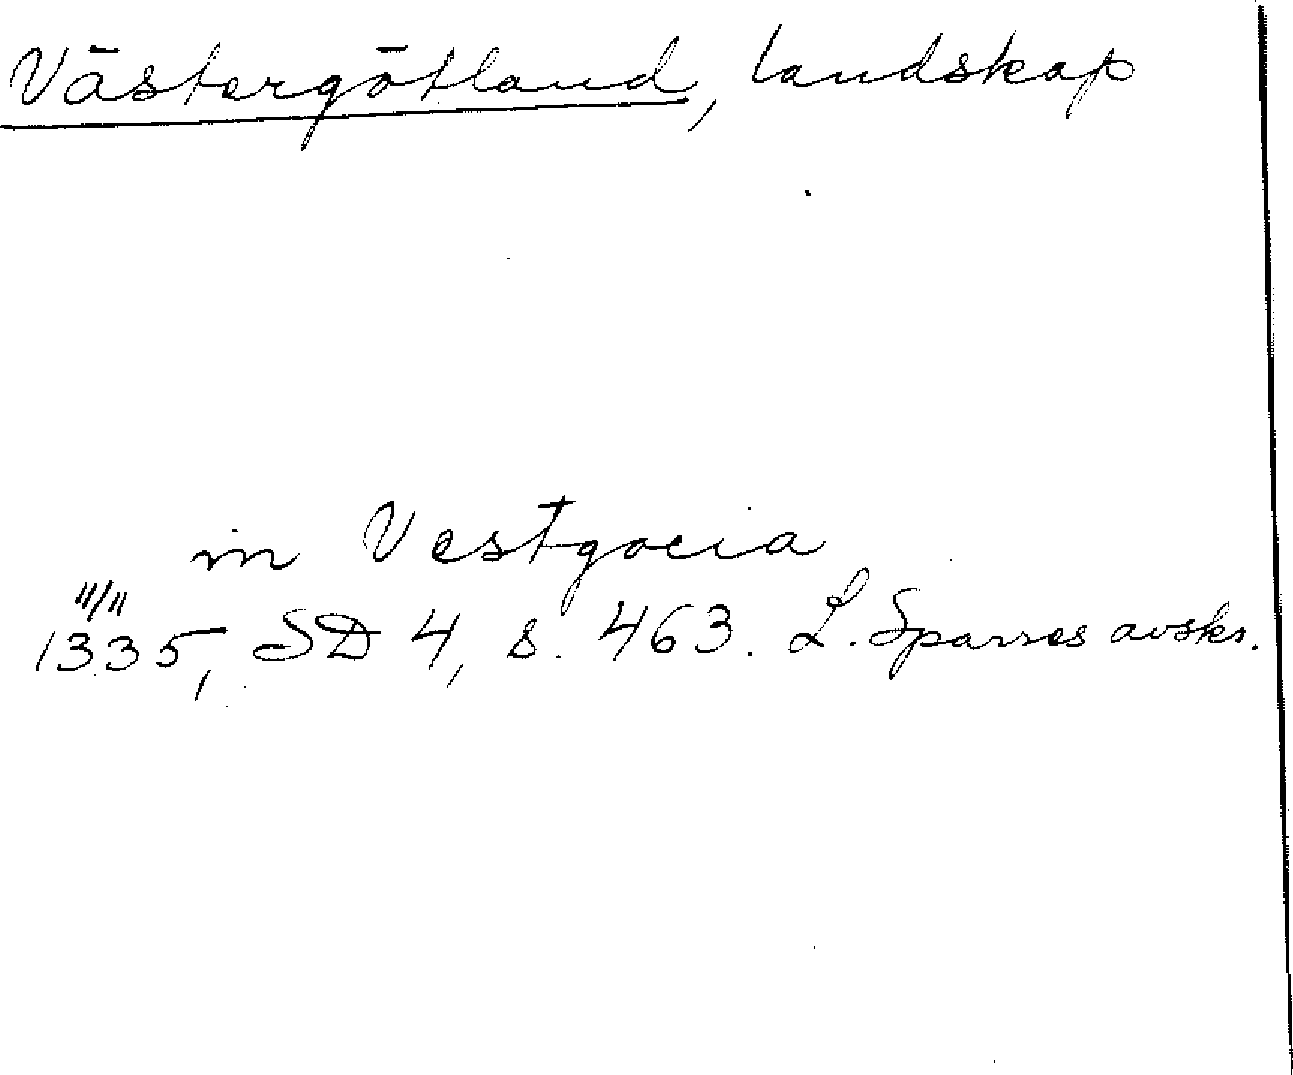 Västergötland, landskap
in Vestgocia
11/11
1335, SD 4, s. 463. L. Sparres avskr.